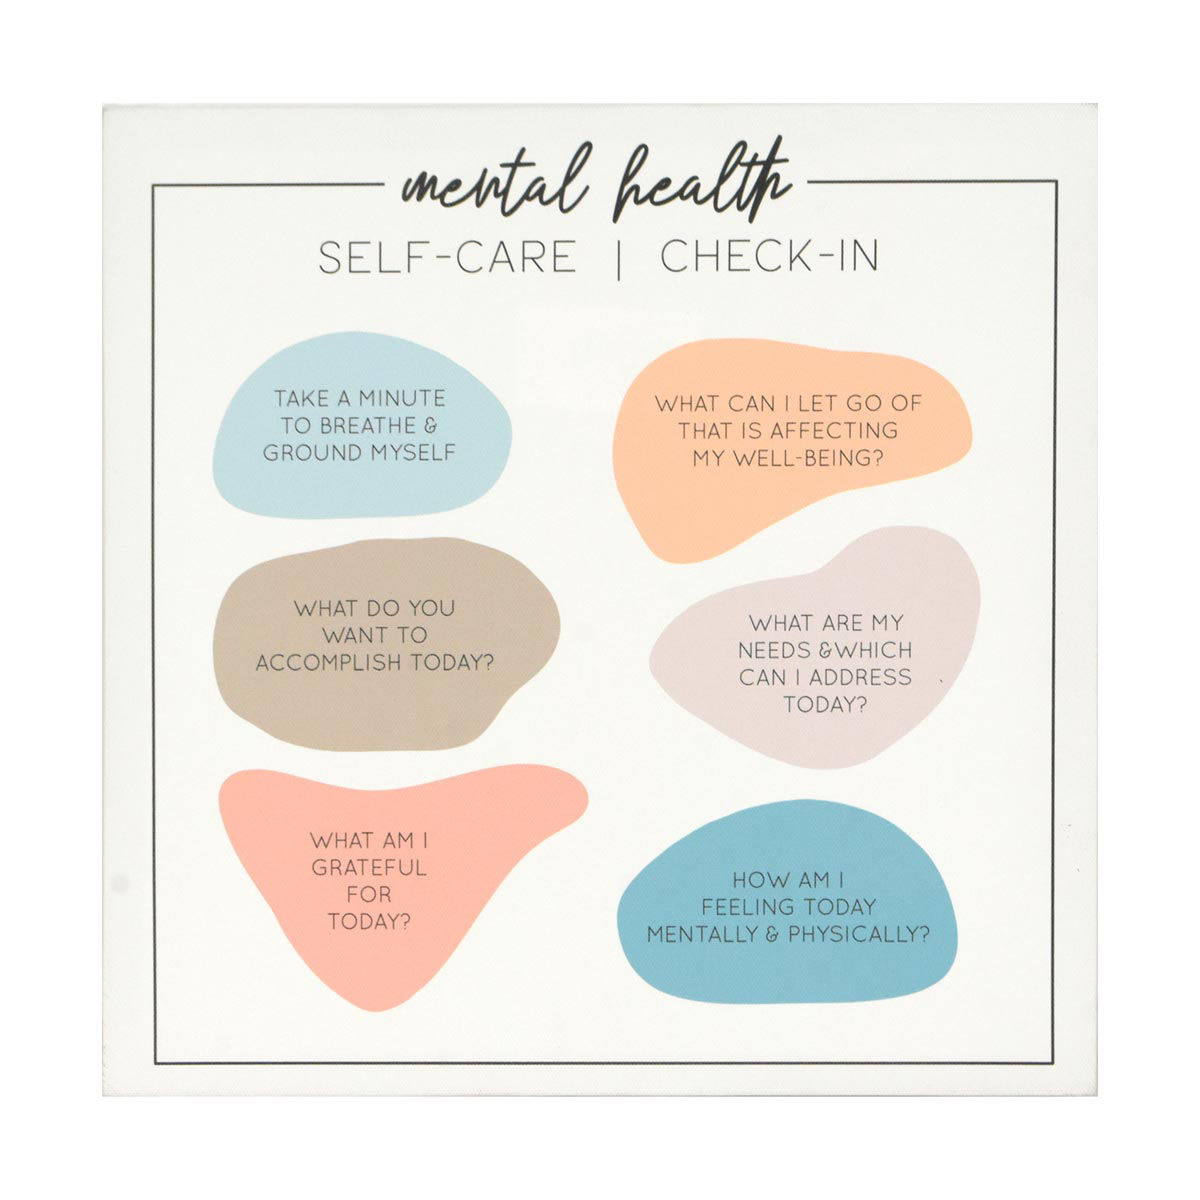 mental health
SELF-CARE | CHECK-IN
TAKE A MINUTE
TO BREATHE &
GROUND MYSELF
WHAT CAN I LET GO OF
THAT IS AFFECTING
MY WELL-BEING?
WHAT DO YOU
WANT TO
ACCOMPLISH TODAY?
WHAT ARE MY
NEEDS &WHICH
CAN I ADDRESS
TODAY?
WHAT AM I
GRATEFUL
FOR
TODAY?
HOW AM I
FEELING TODAY
MENTALLY & PHYSICALLY?